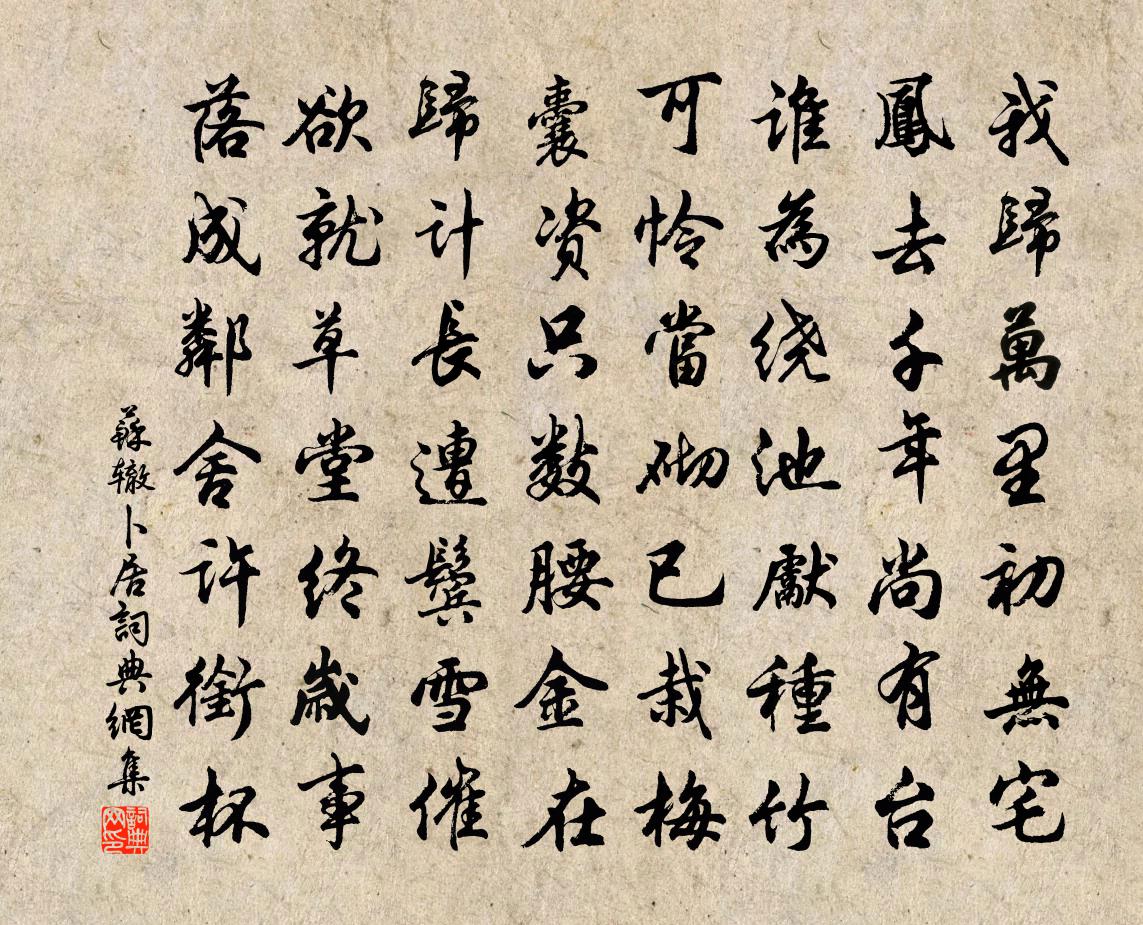 我歸萬里初無宅
鳳去千年尚有台
誰為绕池獻種竹
可怜當砌已栽梅
囊资只數腰金在
歸計長遭鬢雪催
欲就草堂終歲事
落成鄰舍許銜杯
蘇辙卜居詞典網集
詞典网印